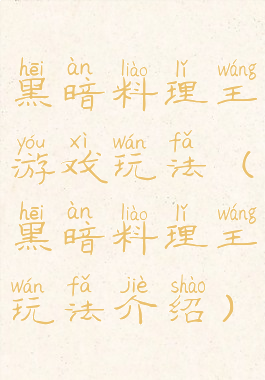 hēi àn liào lǐ wáng
黑暗料理王
yóu xì wán fǎ
游戏玩法（
hēi àn liào lǐ wáng
黑暗料理王
wán fǎ jiè shào
玩法介绍）